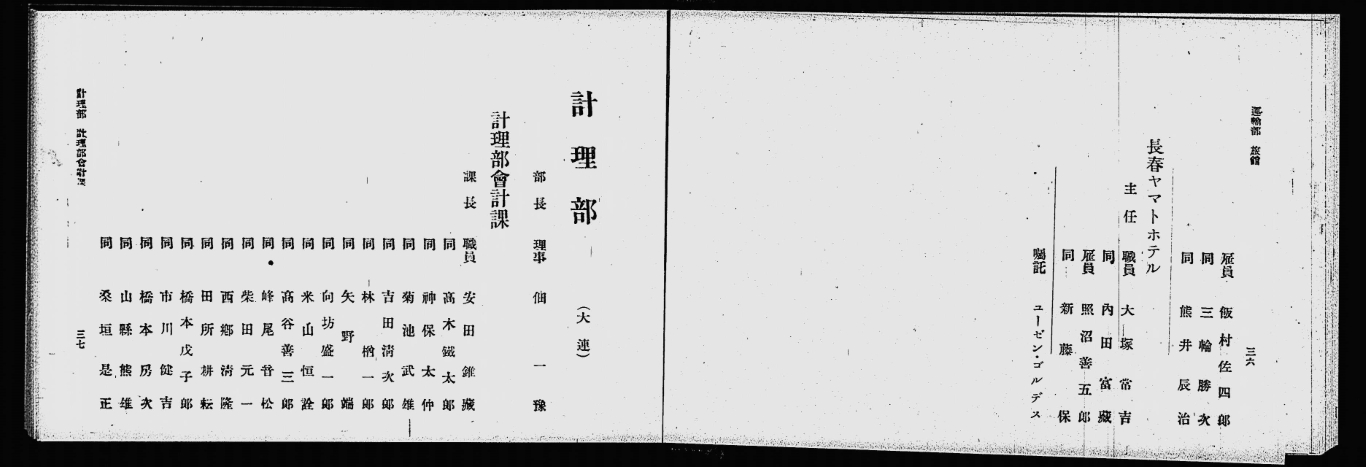 運輸部 旅館
三六
雇員 飯村佐四郎
同 三輪勝次
同 熊井辰治
長春ヤマトホテル
主任 職員 大塚常吉
同 內田富藏
雇員 照沼善五郎
同 新藤保
囑託 ユーゼン・ゴルデス
計理部 (大連)
部長 理事 佃一豫
計理部會計課
課長 職員 安田錐藏
同 高木鐵太郎
同 神保太仲
同 菊池武雄
同 吉田淸次郎
同 林楢一郎
同 矢野端
同 向坊盛一郎
同 米山恒詮
同 高谷善三郎
同 峰尾音松
同 柴田元一
同 西鄕淸隆
同 田所耕耘
同 橋本戊子郎
同 市川健吉
同 橋本房次
同 山縣熊雄
同 桑垣是正
計理部 計理部會計課
三七